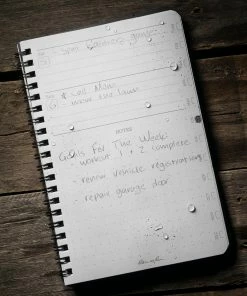 Call Mom
mow the lawn
NOTES
Goals For The Week:
- workout 1 + 2 complete
- renew vehicle registration
- repair garage door